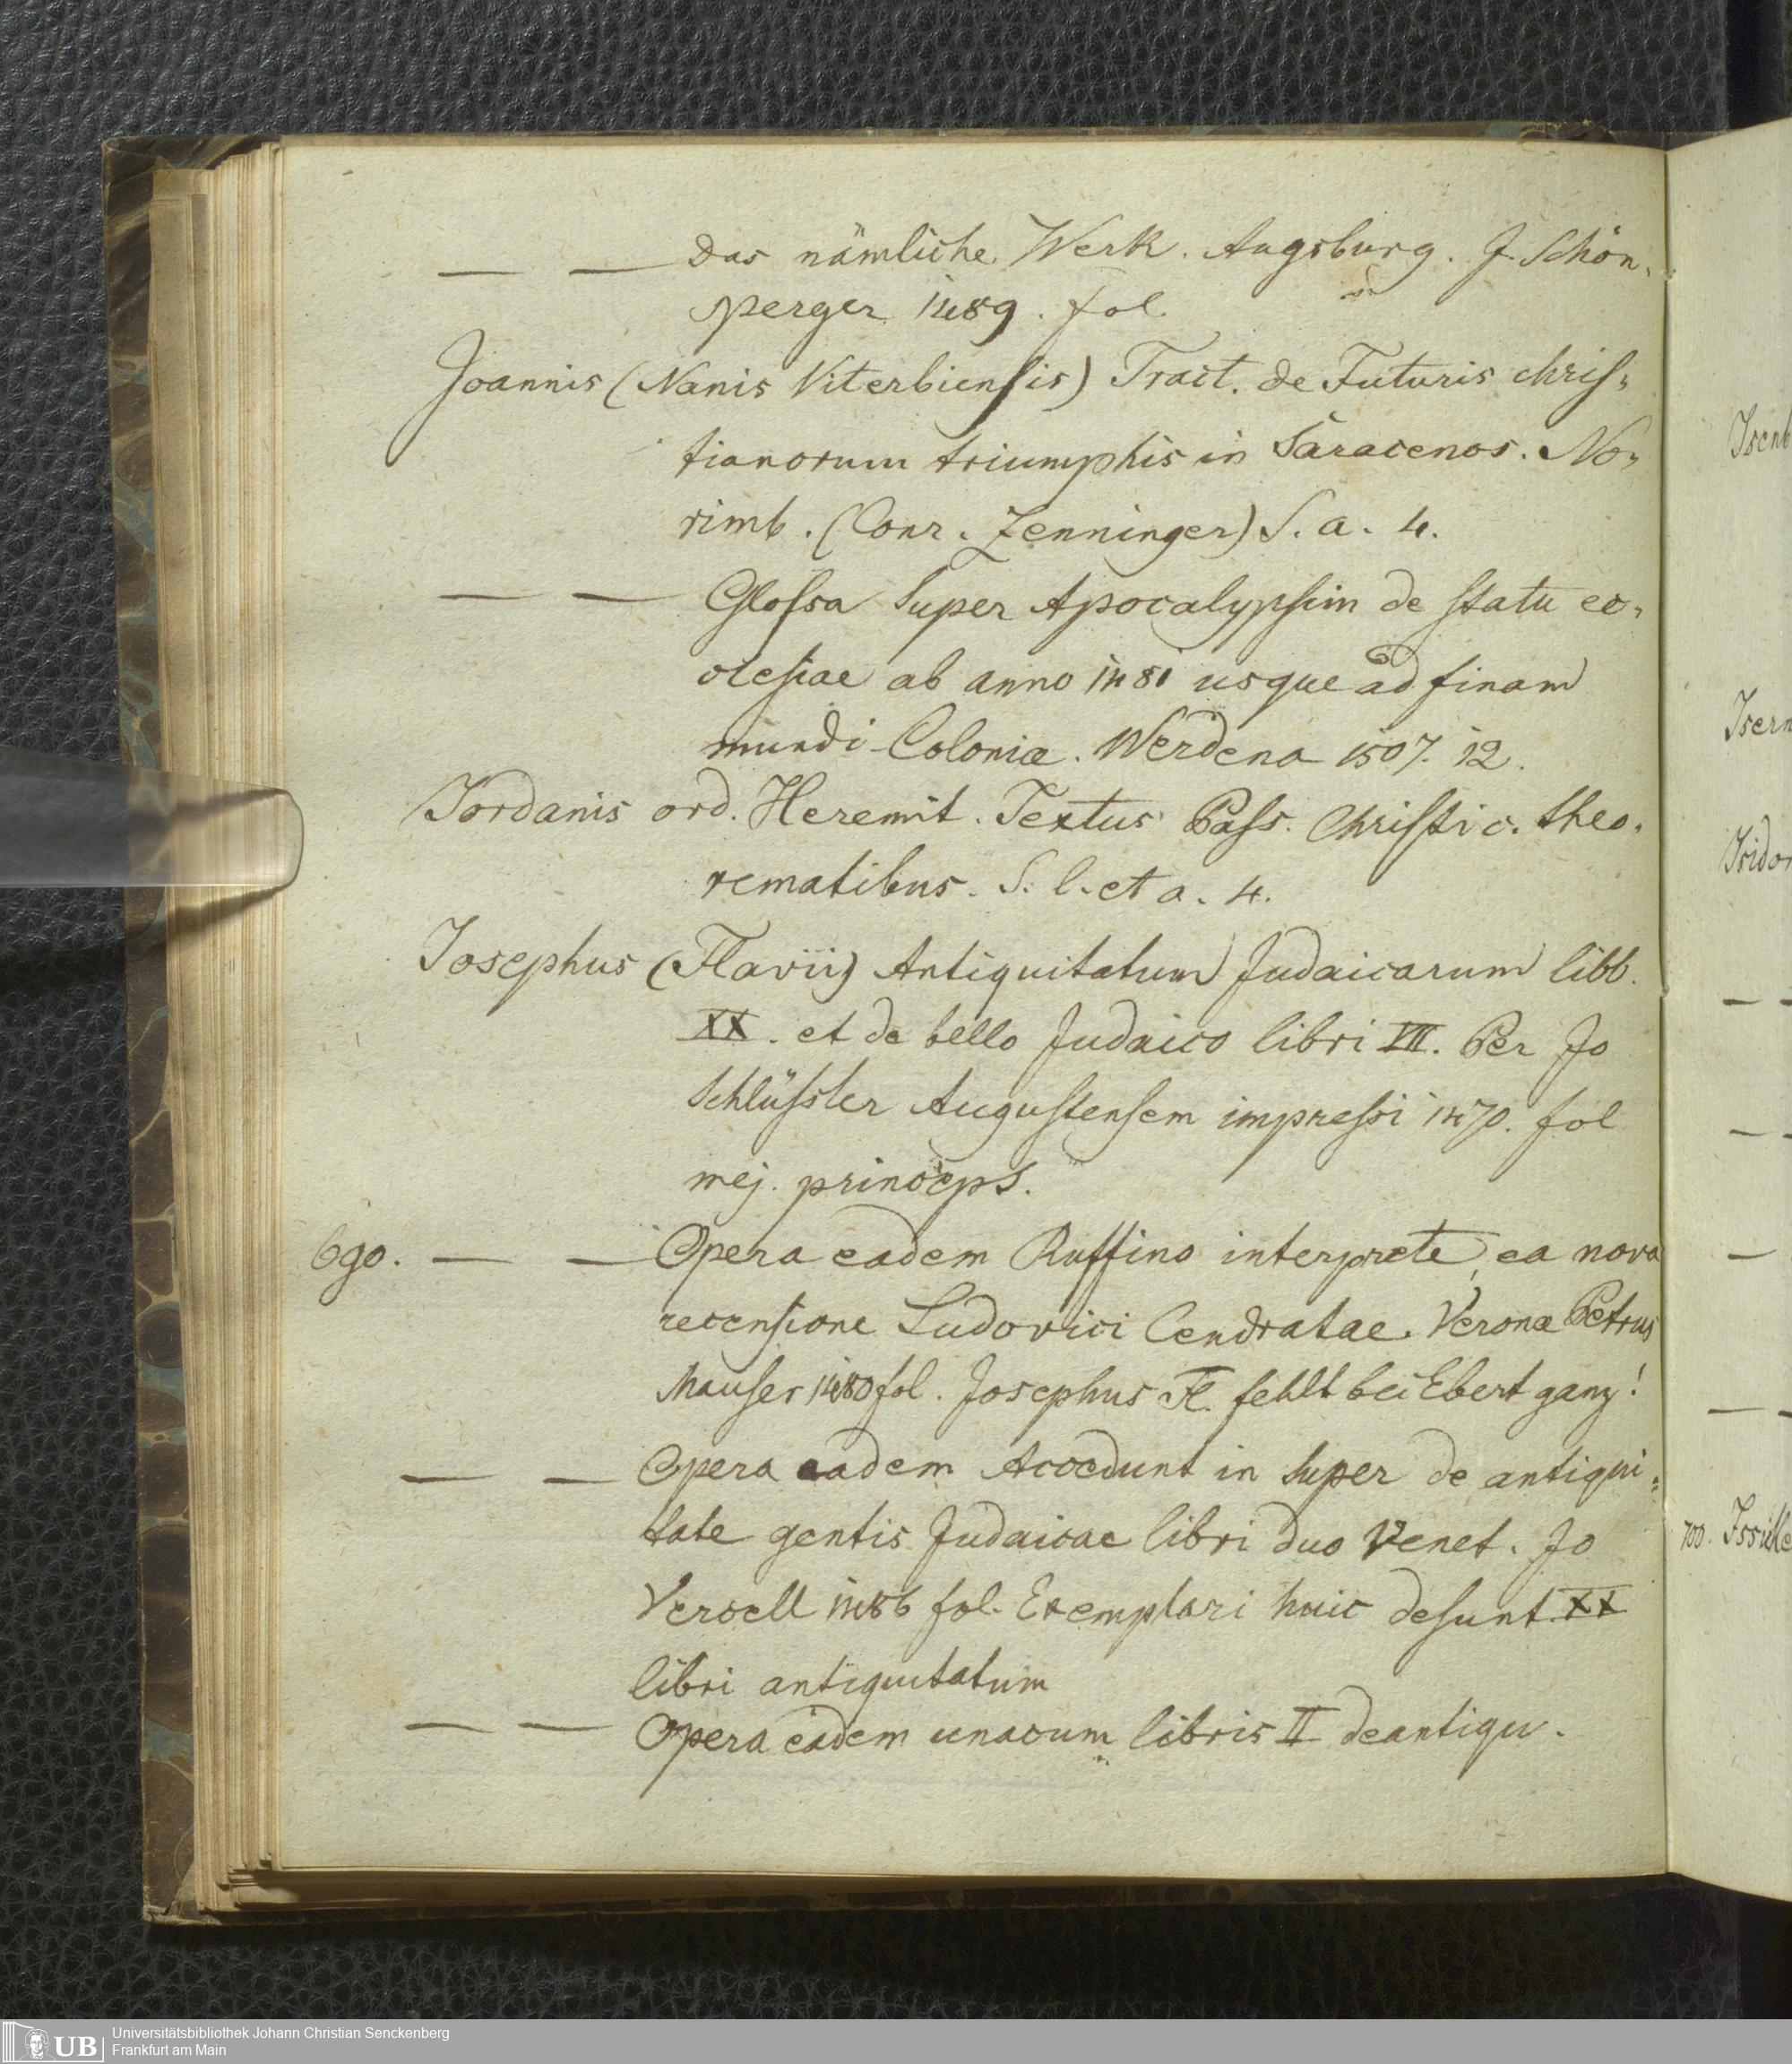 — — Das nämliche Werk. Augsburg. J. Schön-
sperger 1489. fol
Joannis (Nanis Viterbiensis) Tract. de Futuris chris-
tianorum triumphis in Saracenos. No-
rimb. (Conr. Zenninger) S. a. 4.
— — Glossa super Apocalypsim de statu ec-
clesiae ab anno 1481 usque ad finam
mundi Coloniæ. Werdena 1507. 12.
Jordanis ord. Heremit. Textus Pass. Christi c. theo-
rematibus. S. l. et a. 4.
Josephus (Flavii) Antiquitatum Judaicarum libb.
XX. et de bello Judaico libri VII. Per Jo
Schlüssler Augustensem impressi 1470. fol
mej. princeps.
690. — — Opera eadem Ruffino interprete, ea nova
recensione Ludovici Cendratae. Veronæ Petrus
Mauser 1480 fol. Josephus Fl. fehlt bei Ebert ganz!
— — Opera eadem Accedunt in super de antiqui-
tate gentis Judaicae libri duo Venet. Jo
Vercell 1486 fol. Exemplari huic desunt XX
libri antiquitatum
— — Opera eadem unacum libris II de antiqu.
Isern
Isidor
—
—
—
—
700.
Universitätsbibliothek Johann Christian Senckenberg
UB
Frankfurt am Main